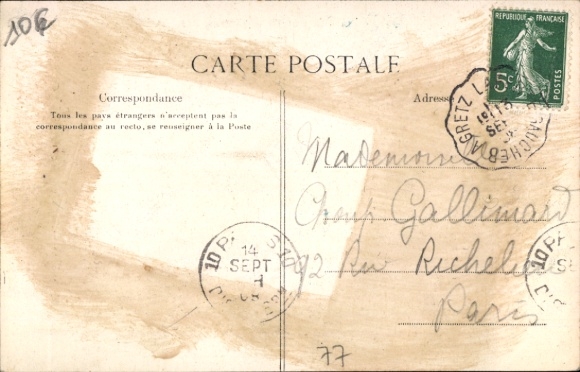 10€
RÉPUBLIQUE FRANÇAISE
5c
POSTES
CARTE POSTALE
Correspondance
Tous les pays étrangers n'acceptent pas la
correspondance au recto, se renseigner à la Poste
Adresse
GRETZ
SEPT
Mademoiselle
Gallimard
92 Rue Richelieu
Paris
14
SEPT
77